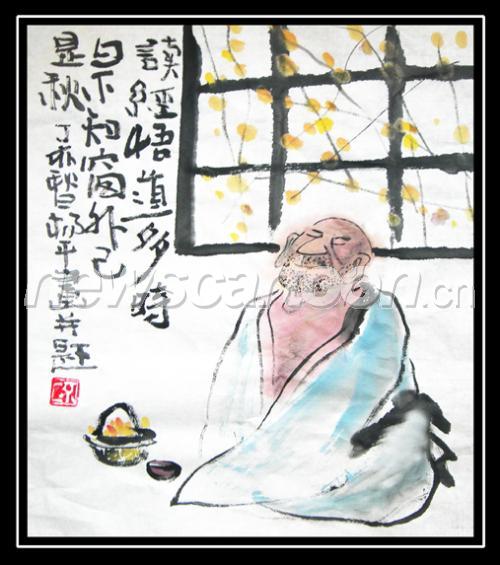 讀經悟道多時
日不知窗外已
是秋 丁亥 杨平畫并題
newscartoon.cn